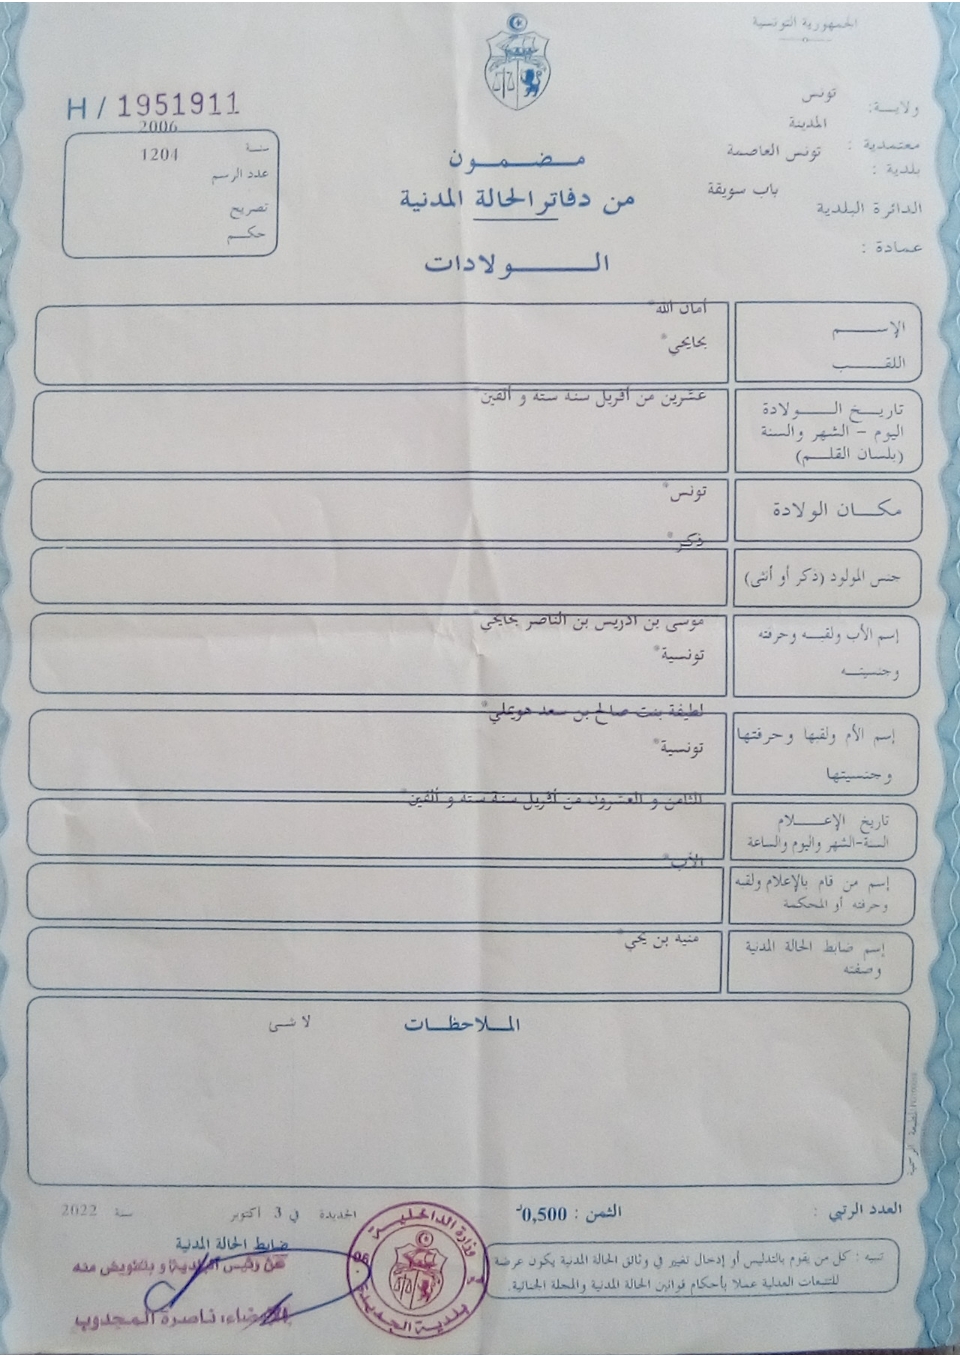 الجمهورية التونسية
ولاية: تونس
معتمدية : المدينة
بلدية : تونس العاصمة
الدائرة البلدية باب سويقة
عمادة :
H / 1951911
2006
سنة
1204
عدد الرسم
تصريح
حكم
مضمون
من دفاتر الحالة المدنية
الولادات
الإسم
أمان الله*
اللقب
يحايحي*
تاريخ الولادة
اليوم - الشهر والسنة
(بلسان القلم)
عشرين من أفريل سنة ستة و ألفين*
مكان الولادة
تونس*
جنس المولود (ذكر أو أنثى)
ذكر*
إسم الأب ولقبه وحرفته
وجنسيته
موسى بن ادريس بن الناصر يحايحي*
تونسية*
إسم الأم ولقبها وحرفتها
وجنسيتها
لطيفة بنت صالح بن سعد هويملي*
تونسية*
تاريخ الإعلام
السنة-الشهر واليوم والساعة
الثامن و العشرون من أفريل سنة ستة و ألفين*
إسم من قام بالإعلام ولقبه
وحرفته أو المحكمة
الأب*
إسم ضابط الحالة المدنية
وصفته
منية بن يحي*
الملاحظات
لا شى
العدد الرتبي :
الثمن : 0,500د
الجديدة في 3 أكتوبر سنة 2022
ضابط الحالة المدنية
عن رئيس البلدية و بتفويض منه
الإمضاء: ناصرة المجدوب
وزارة الداخلية
بلدية الجديدة
تنبيه : كل من يقوم بالتدليس أو إدخال تغيير في وثائق الحالة المدنية يكون عرضة
للتتبعات العدلية عملا بأحكام قوانين الحالة المدنية والمجلة الجنائية.